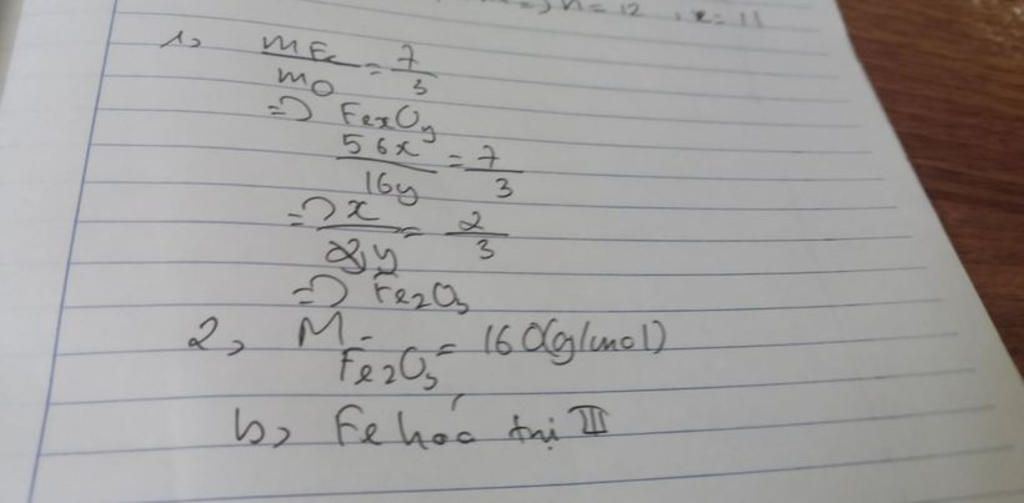 n = 12, e = 11
1, mFe/mO = 7/3
=> FexOy
56x/16y = 7/3
=> x/y = 2/3
=> Fe2O3
2, M Fe2O3 = 160(g/mol)
b, Fe hóa trị III